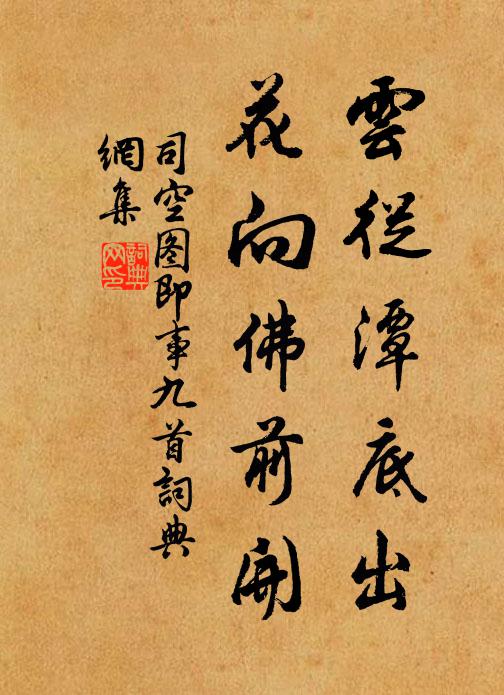 雲從潭底出
花向佛前開
司空图即事九首詞典
網集
詞典網印